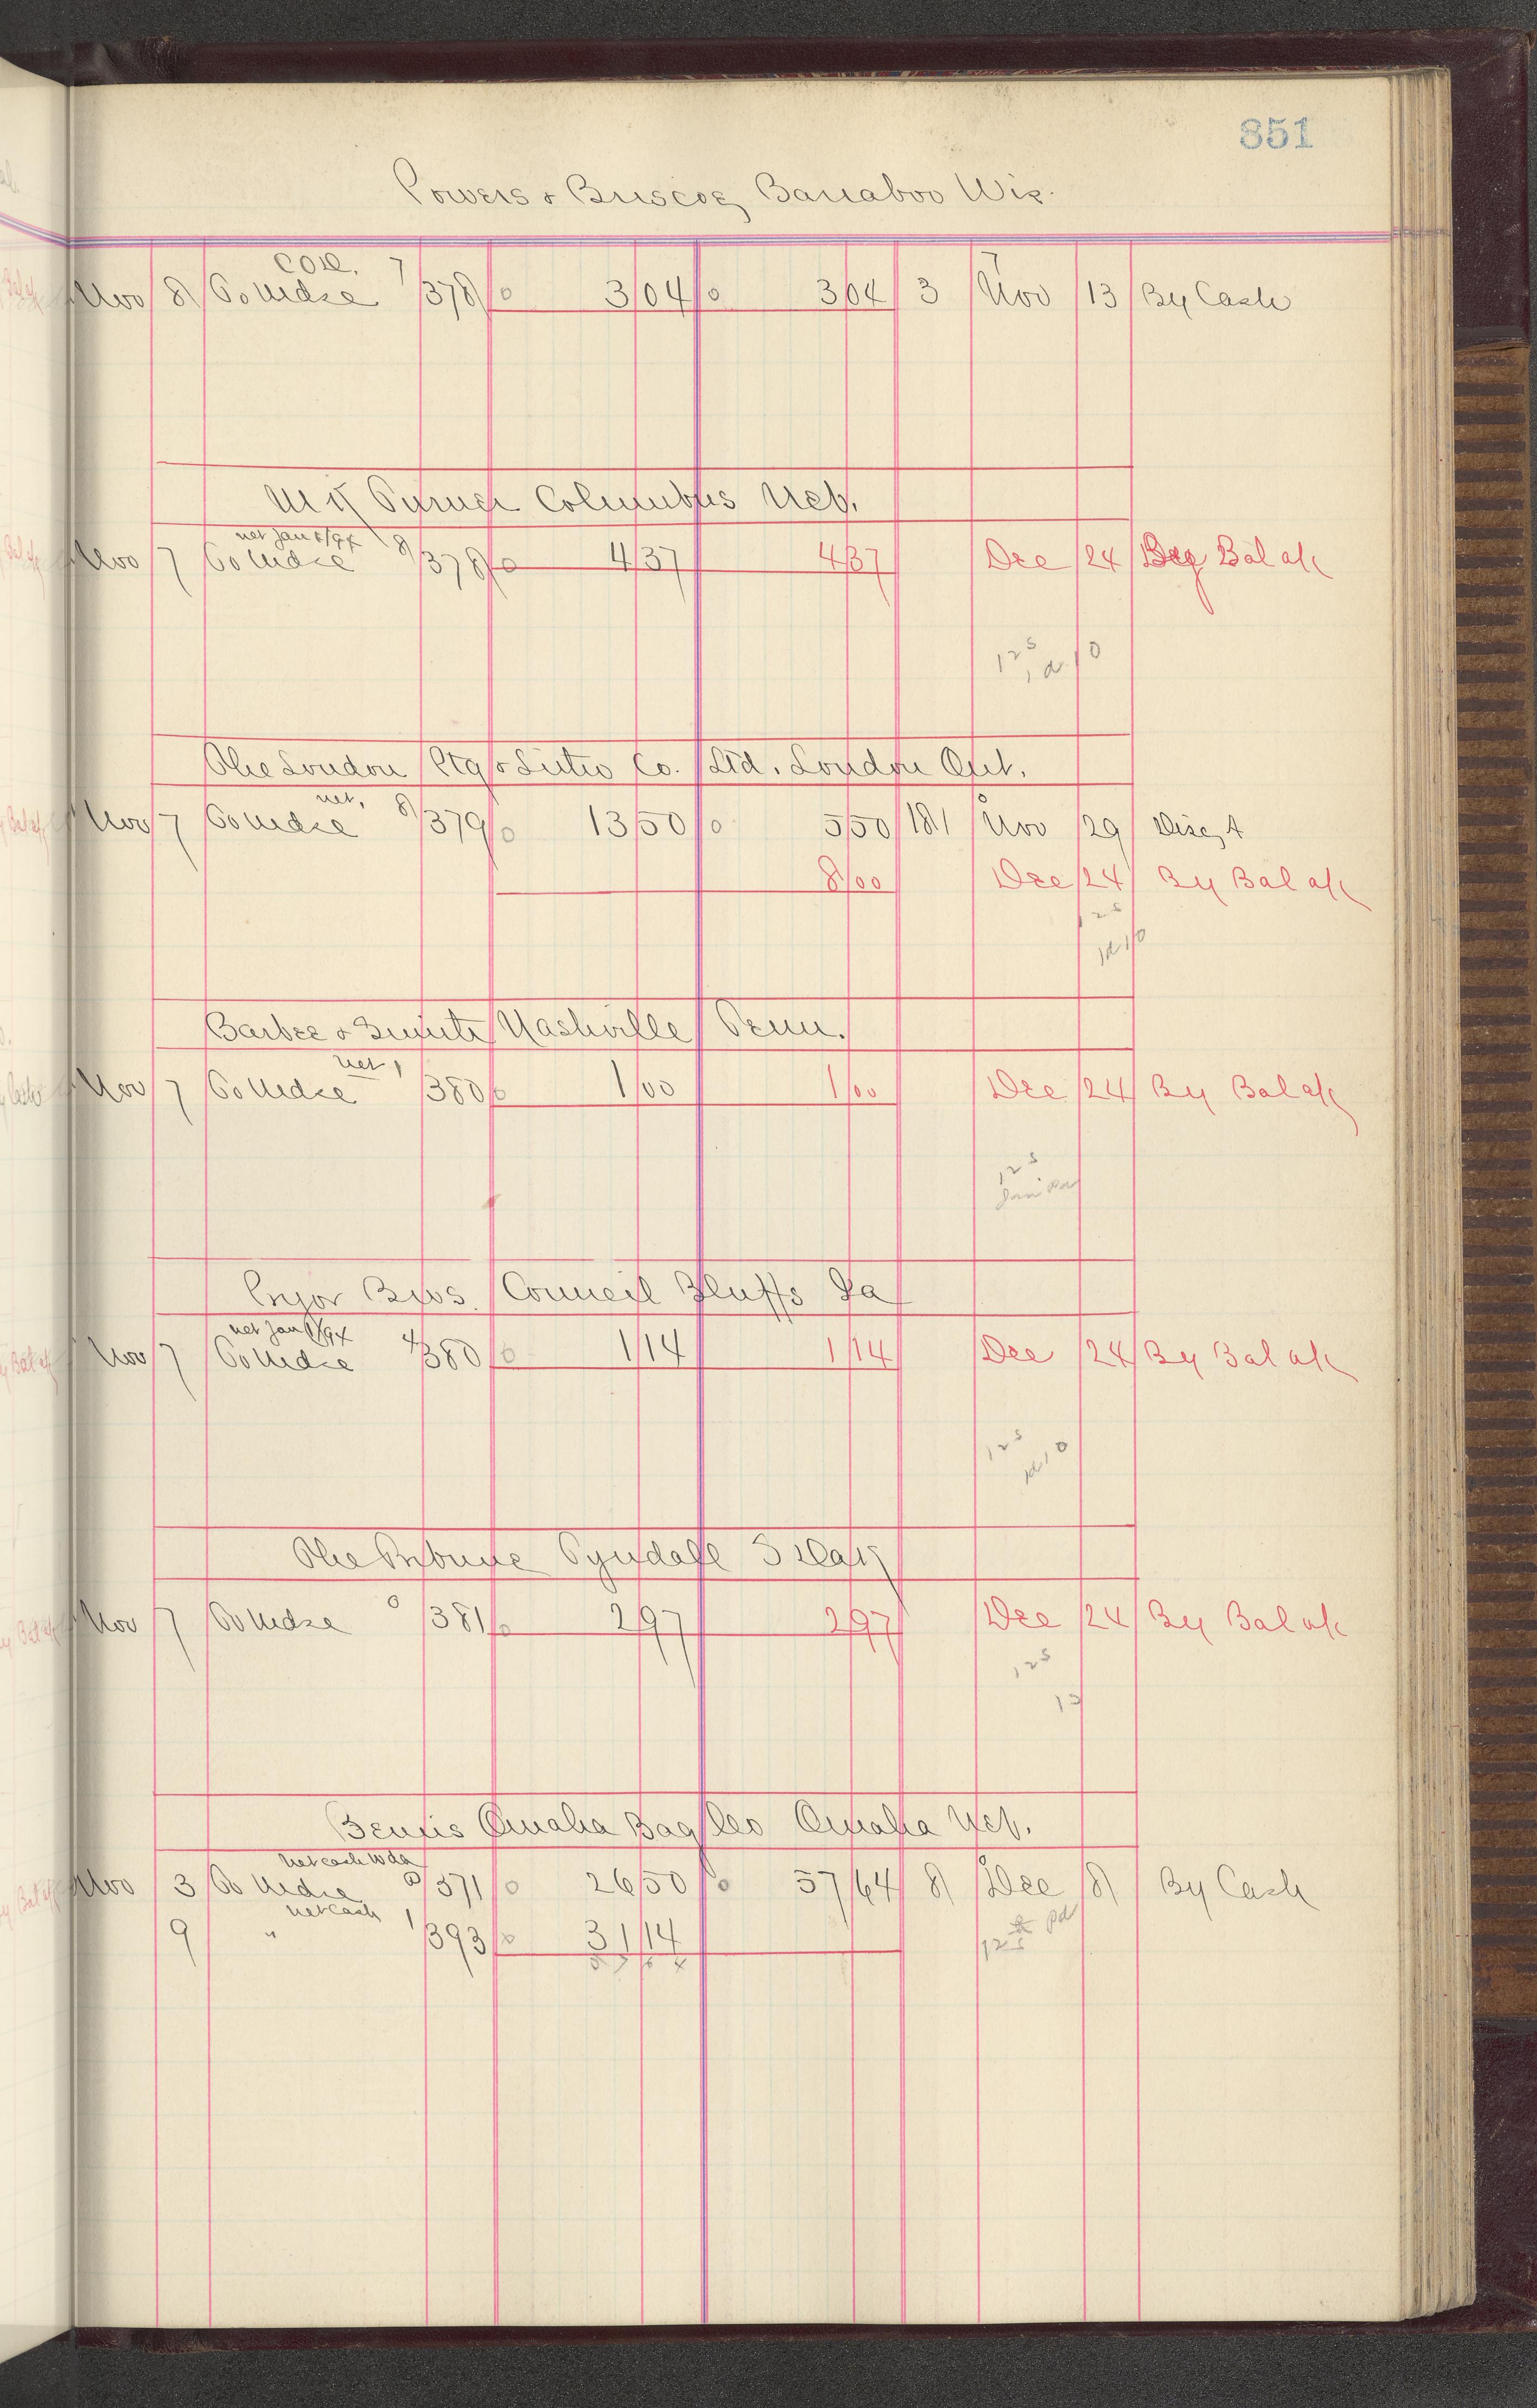 851
Powers & Briscoe, Baraboo Wis.
C.O.D. 7
Nov 8 To Mdse 378 3 04 3 04 3 Nov 13 By Cash
M K Turner Columbus Neb.
net Jan 1/94 8
Nov 7 To Mdse 378 4 37 4 37 Dec 24 By Bal a/c
12 5
The London Ptg & Litho Co. Ltd. London Ont.
net. 8
Nov 7 To Mdse 379 13 50 5 50 181 Nov 29 Disc, A
8 00 Dec 24 By Bal a/c
12 5
Barbee & Smith Nashville Tenn.
net,
Nov 7 To Mdse 380 1 00 1 00 Dec 24 By Bal a/c
12 5
Pryor Bros. Council Bluffs Ia
net Jan 1/94 4
Nov 7 To Mdse 380 1 14 1 14 Dec 24 By Bal a/c
12 5
The Tribune Tyndall S Dak
Nov 7 To Mdse 0 381 2 97 2 97 Dec 24 By Bal a/c
12 5
Bemis Omaha Bag Co Omaha Neb.
net cash 10 da
Nov 3 To Mdse 0 371 26 50 57 64 8 Dec 8 By Cash
net cash 1
9 " 393 31 14
57 64
12 5 pd